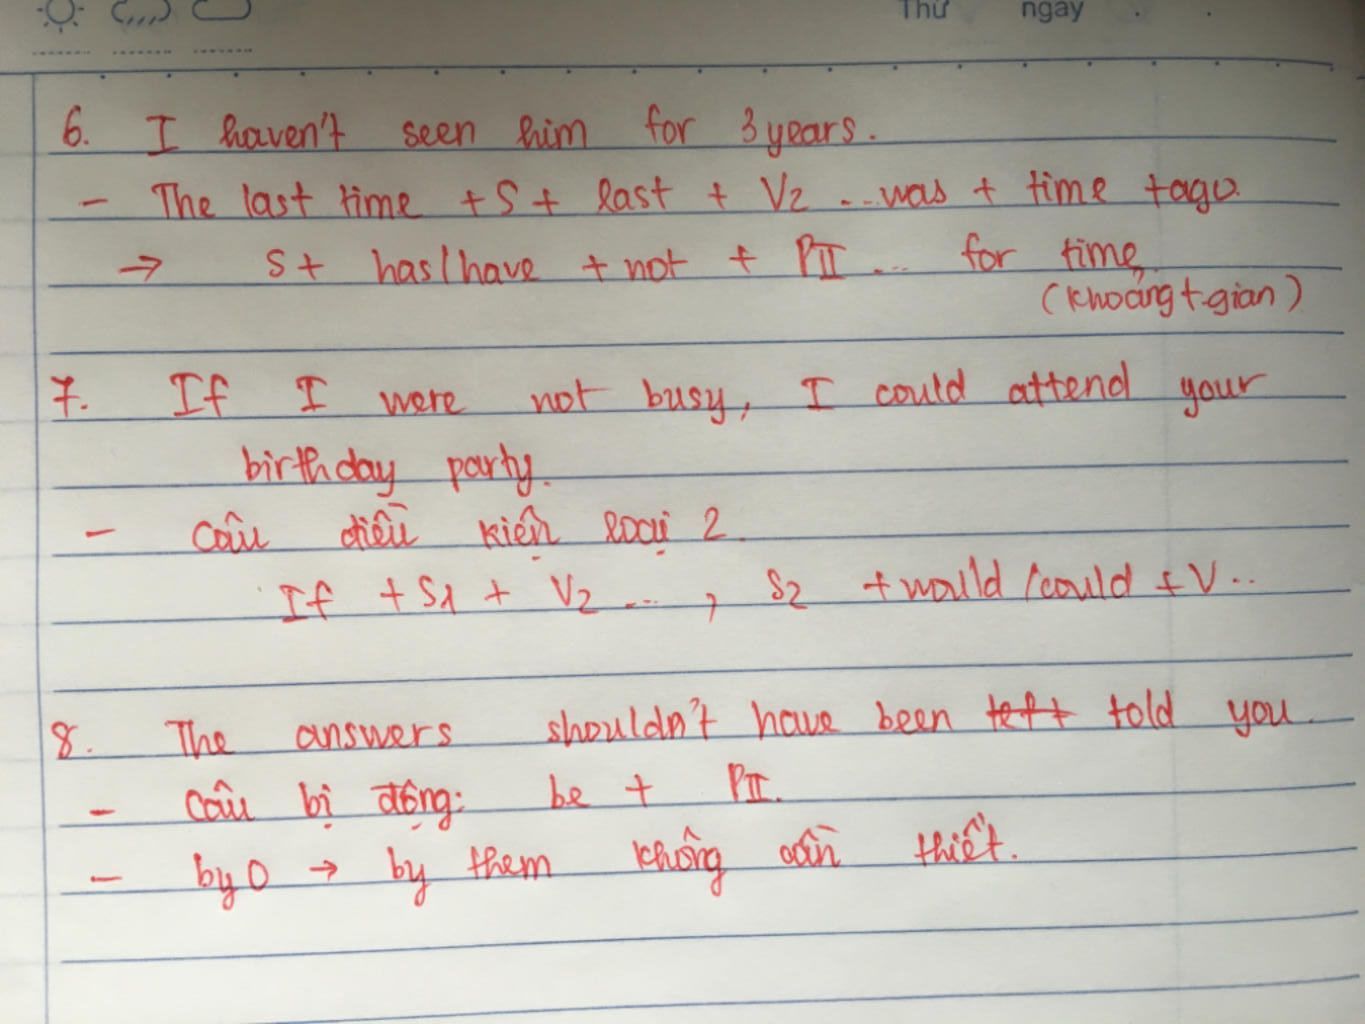 Thứ ngày . .
6. I haven't seen him for 3 years.
- The last time + S + last + V2 ... was + time + ago.
→ S + has/have + not + PII ... for time
(khoảng t.gian)
7. If I were not busy, I could attend your
birthday party.
- Câu điều kiện loại 2.
If + S1 + V2 ... , S2 + would/could + V ...
8. The answers shouldn't have been left told you.
- Câu bị động: be + PII.
- by O → by them không cần thiết.